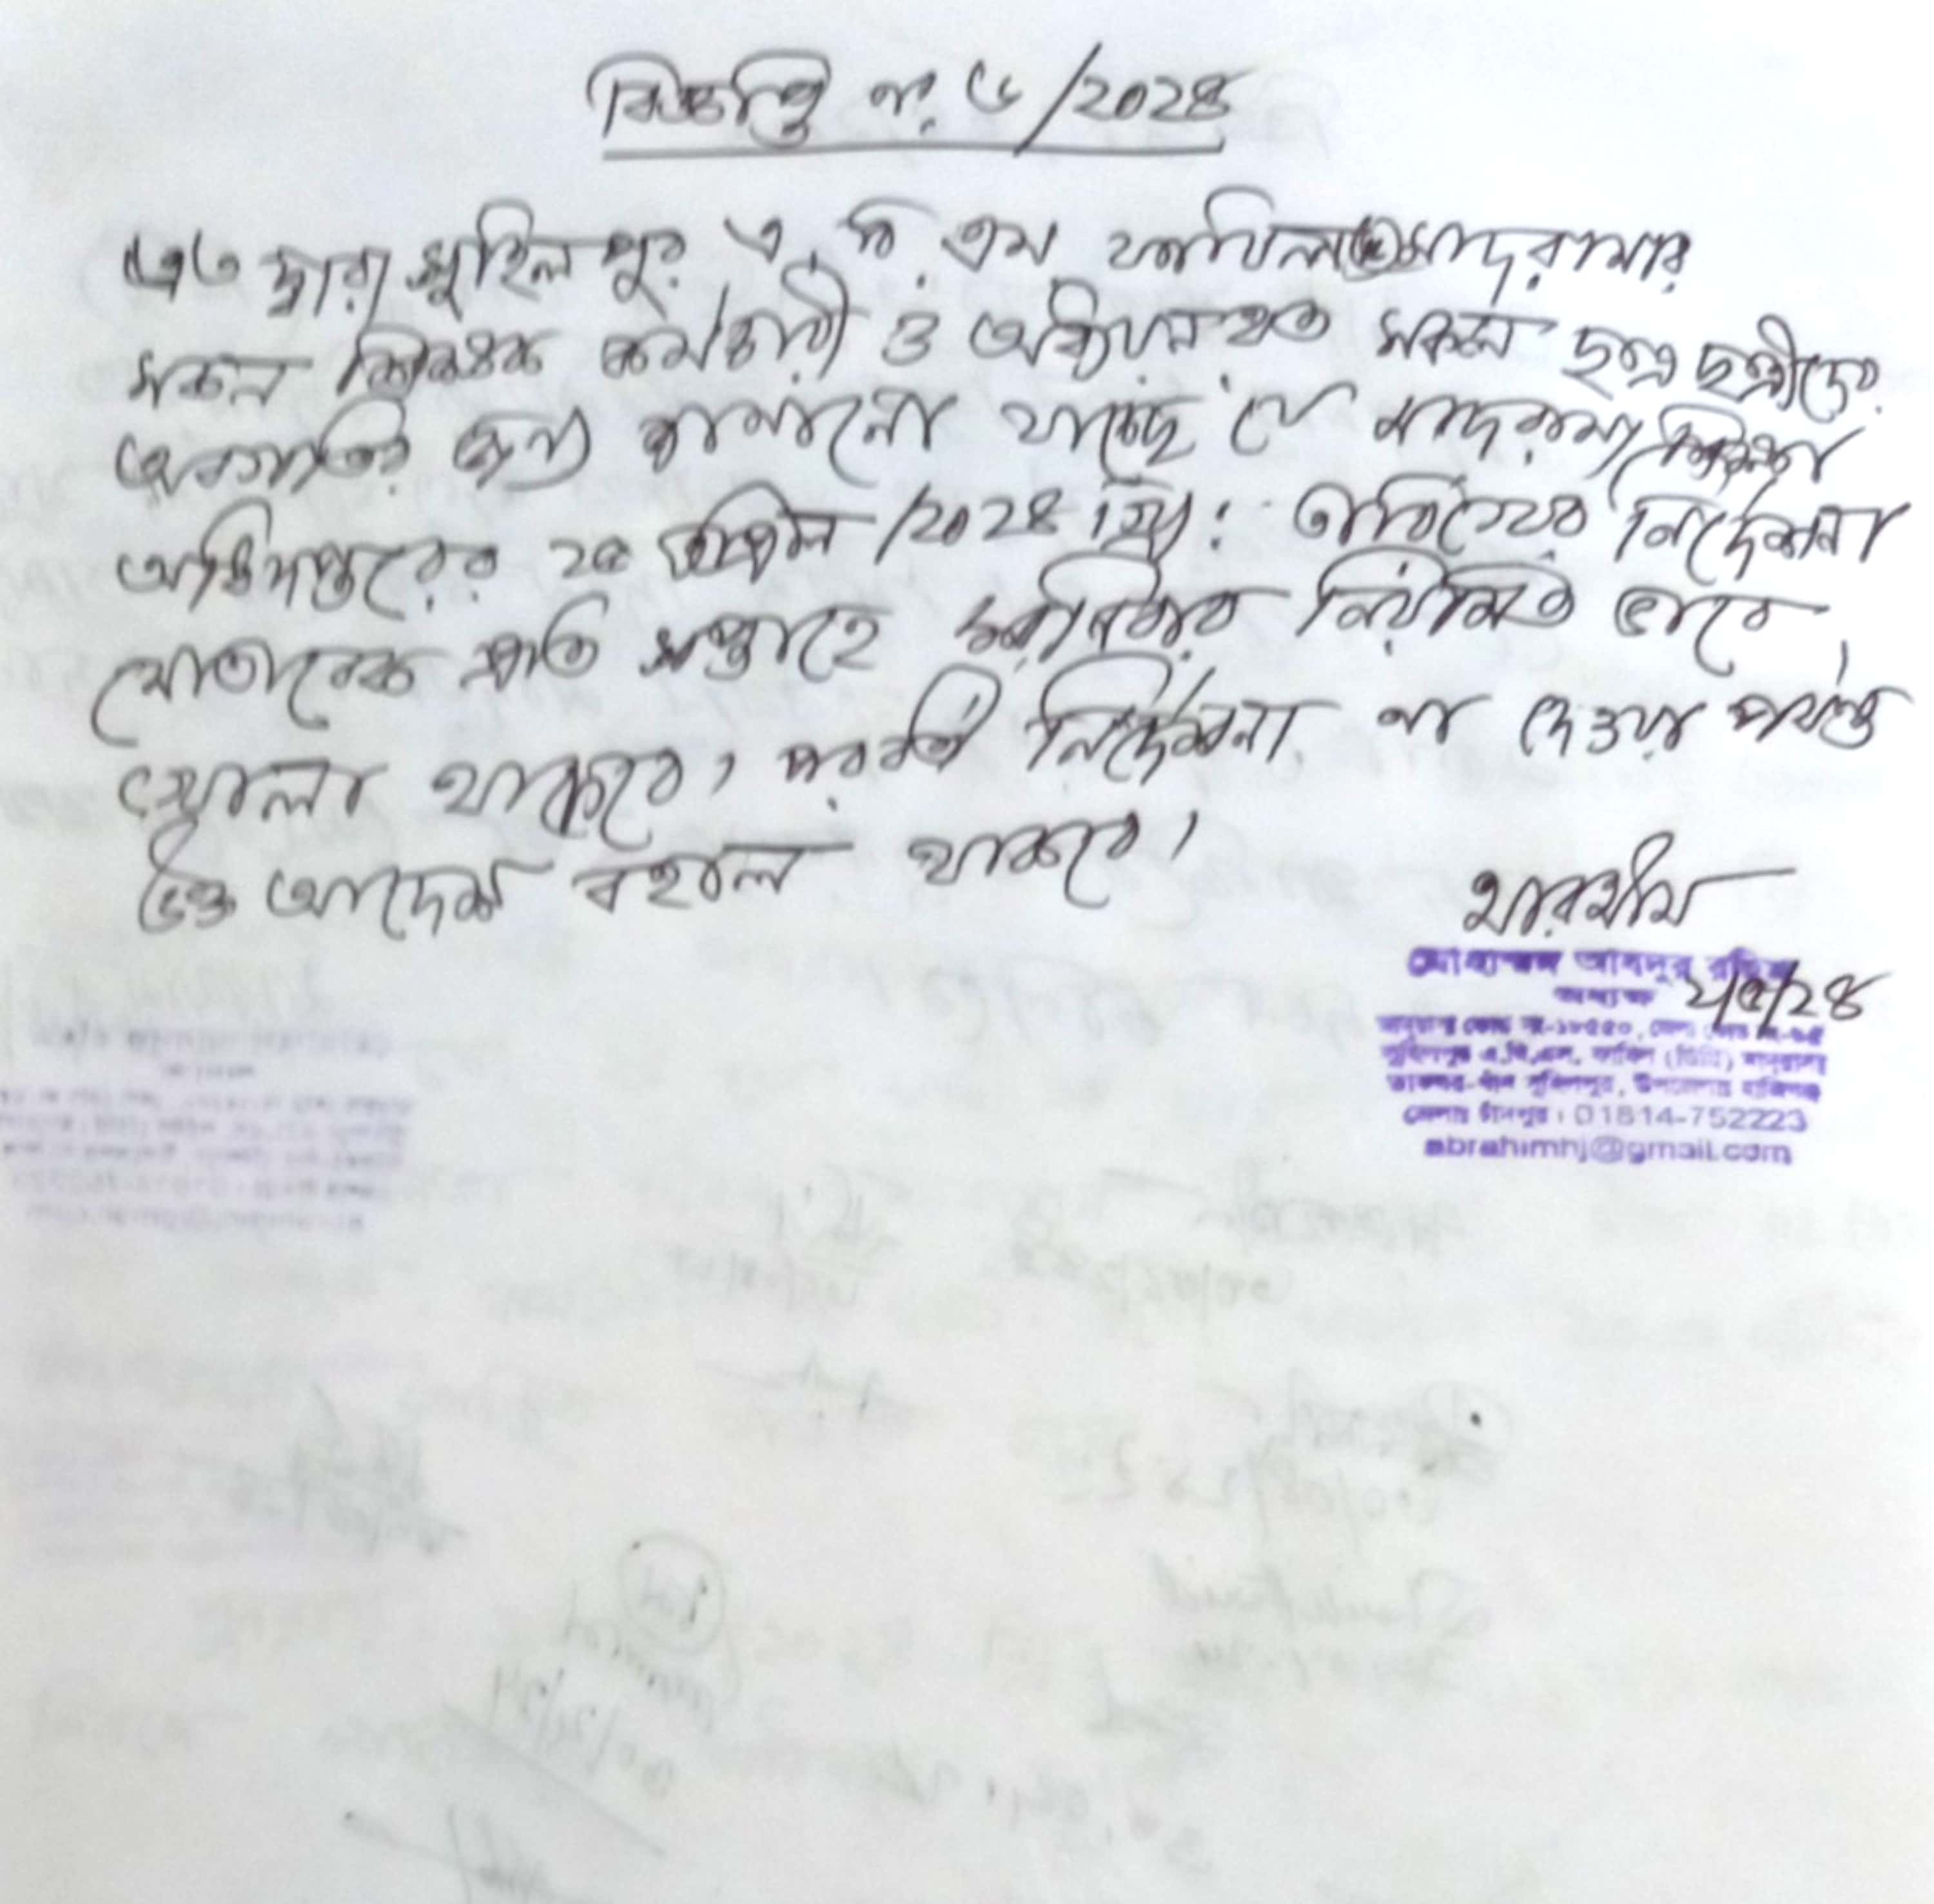 বিজ্ঞপ্তি নং ৬/২০২৪
এতদ্বারা সুহিলপুর এ, বি, এম, ফাযিল মাদরাসার
সকল শিক্ষক কর্মচারী ও অধ্যয়নরত সকল ছাত্র ছাত্রীদের
অবগতির জন্য জানানো যাচ্ছে যে মাদরাসা শিক্ষা
অধিদপ্তরের ২৫ এপ্রিল /২০২৪ খ্রি: তারিখের নির্দেশনা
মোতাবেক প্রতি সপ্তাহে শনিবার নিয়মিত ভাবে
খোলা থাকবে। পরবর্তি নির্দেশনা না দেওয়া পর্যন্ত
উক্ত আদেশ বহাল থাকবে।
মোহাম্মদ আবদুর
অধ্যক্ষ ২/৫/২৪
সুহিলপুর এ,বি,এম, ফাযিল (ডিগ্রি) মাদ্রাসা
জেলাঃ চাঁদপুর। 01814-752223
abrahimhj@gmail.com